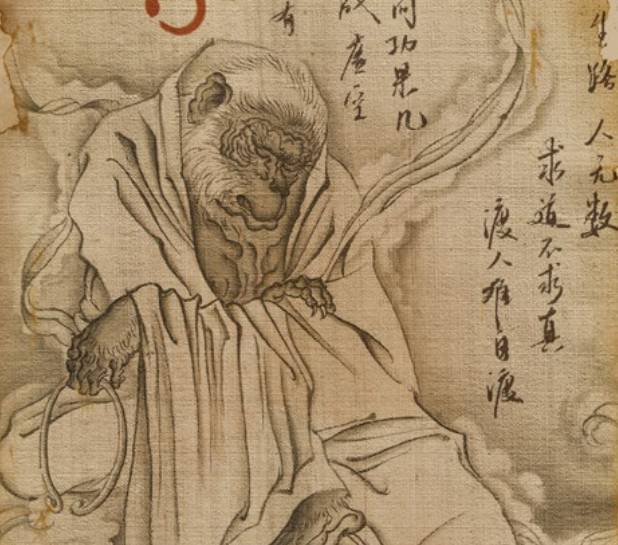 生路 人无数
求道不求真
渡人难自渡
功果几
成虚空
有